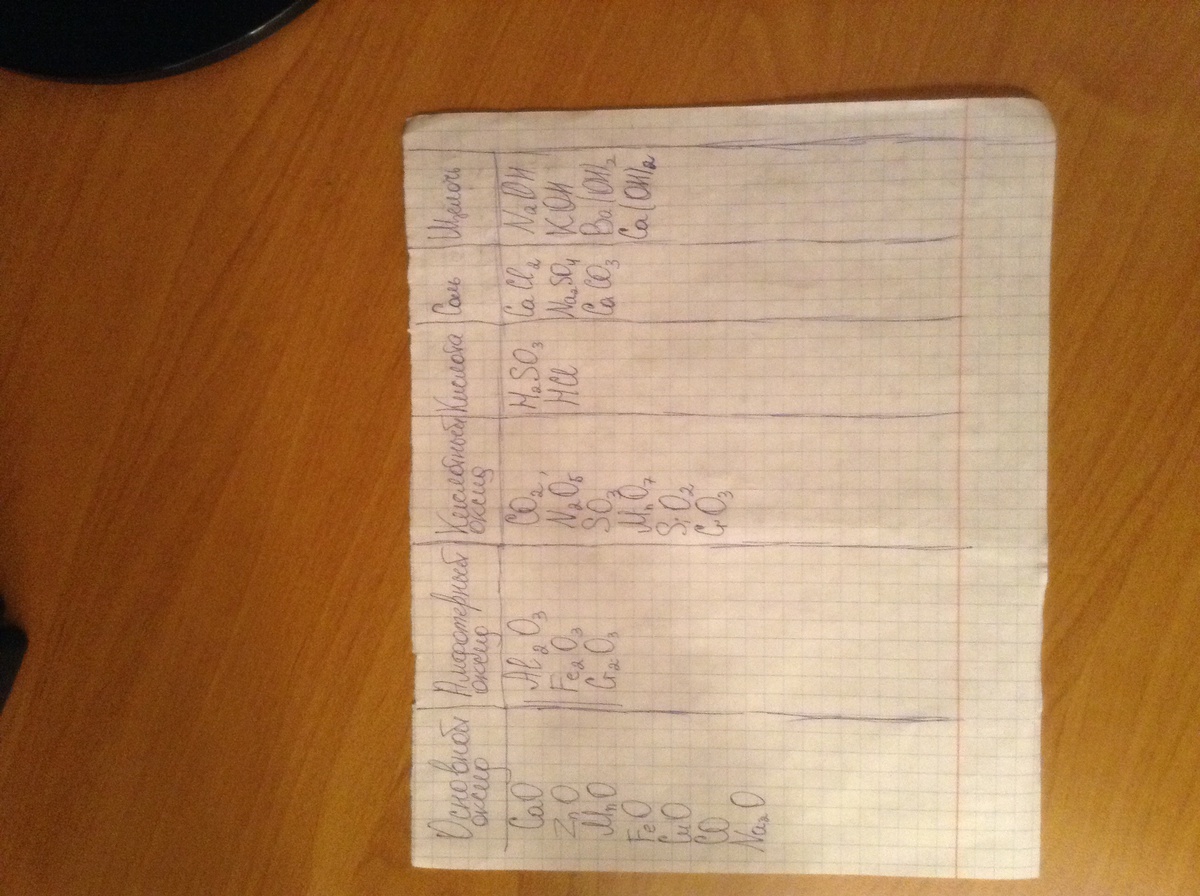 Основной оксид | Амфотерный оксид | Кислотный оксид | Кислота | Соль | Щелочь
CaO | Al₂O₃ | CO₂ | H₂SO₃ | CaCl₂ | NaOH
ZnO | Fe₂O₃ | N₂O₅ | HCl | Na₂SO₄ | KOH
MnO | Cr₂O₃ | SO₃ | CaCO₃ | Ba(OH)₂
FeO | MnO₇ | Ca(OH)₂
CuO | SiO₂
CO | CrO₃
Na₂O